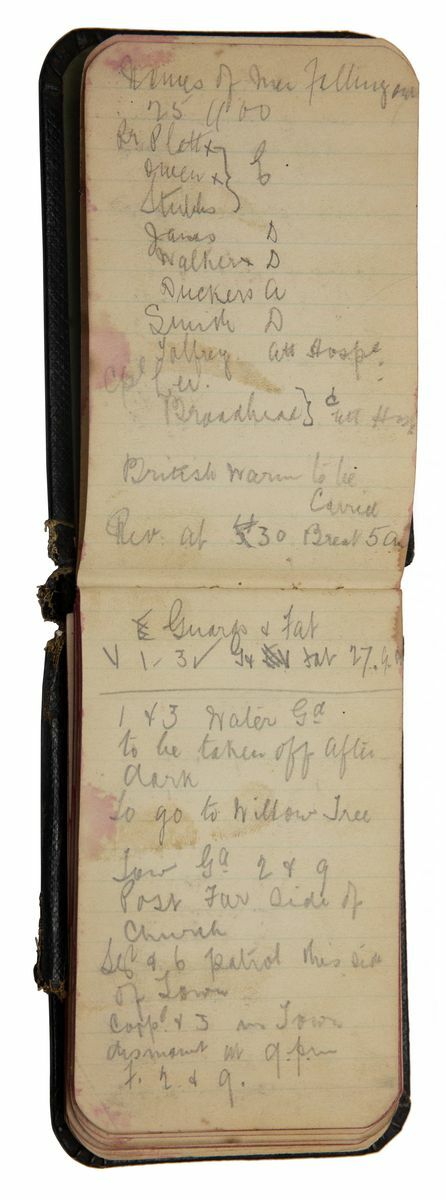 Names of Men falling out
25 11 00
Br Platt x } C
Owen x
Stubbs
Jones D
Walker x D
Duckers A
Smith D
Jolfrey att Hospl
Cpl
Broadhead } att Hosp
British Warm to be
Carried
Rev. at 4 30 Breat 5 am
Guards & Fat
1 - 3 Gd Fat 27.
1 & 3 Water Gd
to be taken off after
dark
To go to Willow Tree
Tow Gd 2 & 9
Post Far Side of
Church
Sgt & 6 patrol this side
of Town
Corpl & 3 in Town
dismount at 9.pm
F. 2 & 9.